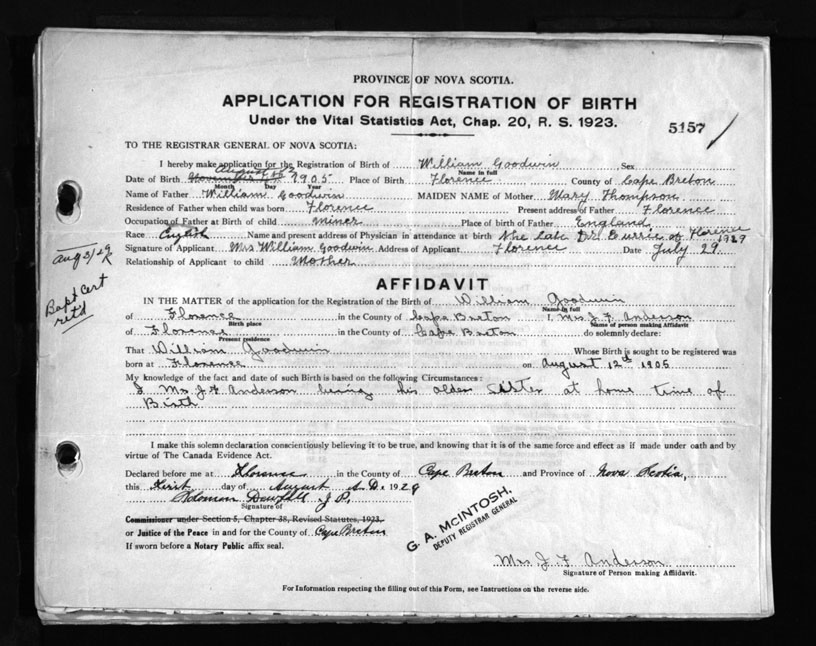 PROVINCE OF NOVA SCOTIA.
APPLICATION FOR REGISTRATION OF BIRTH
Under the Vital Statistics Act, Chap. 20, R. S. 1923.
5157
TO THE REGISTRAR GENERAL OF NOVA SCOTIA:
I hereby make application for the Registration of Birth of William Goodwin Sex
Name in full
August 12
Date of Birth 1905 Place of Birth Florence County of Cape Breton
Month Day Year
Name of Father William Goodwin MAIDEN NAME of Mother Mary Thompson
Residence of Father when child was born Florence Present address of Father Florence
Occupation of Father at Birth of child miner Place of birth of Father England
Race Name and present address of Physician in attendance at birth the late Dr Currie of Florence
Signature of Applicant Mrs William Goodwin Address of Applicant Florence Date July 29. 1929
Relationship of Applicant to child Mother
Aug 3/29
Bapt Cert
ret'd
AFFIDAVIT
IN THE MATTER of the application for the Registration of the Birth of William Goodwin
Name in full
of Florence in the County of Cape Breton I, Mrs J F Anderson
Birth place Name of person making Affidavit
of Florence in the County of Cape Breton do solemnly declare:
Present residence
That William Goodwin Whose Birth is sought to be registered was
born at Florence on August 12th 1905
My knowledge of the fact and date of such Birth is based on the following Circumstances:
I Mrs J F Anderson being his older sister at home time of
Birth
I make this solemn declaration conscientiously believing it to be true, and knowing that it is of the same force and effect as if made under oath and by
virtue of The Canada Evidence Act.
Declared before me at Florence in the County of Cape Breton and Province of Nova Scotia,
this First day of August A.D. 1929
J P.
Signature of
Commissioner under Section 5, Chapter 38, Revised Statutes, 1923.
or Justice of the Peace in and for the County of Cape Breton
If sworn before a Notary Public affix seal.
G. A. McINTOSH,
DEPUTY REGISTRAR GENERAL
Mrs J F Anderson
Signature of Person making Affidavit.
For Information respecting the filling out of this Form, see Instructions on the reverse side.